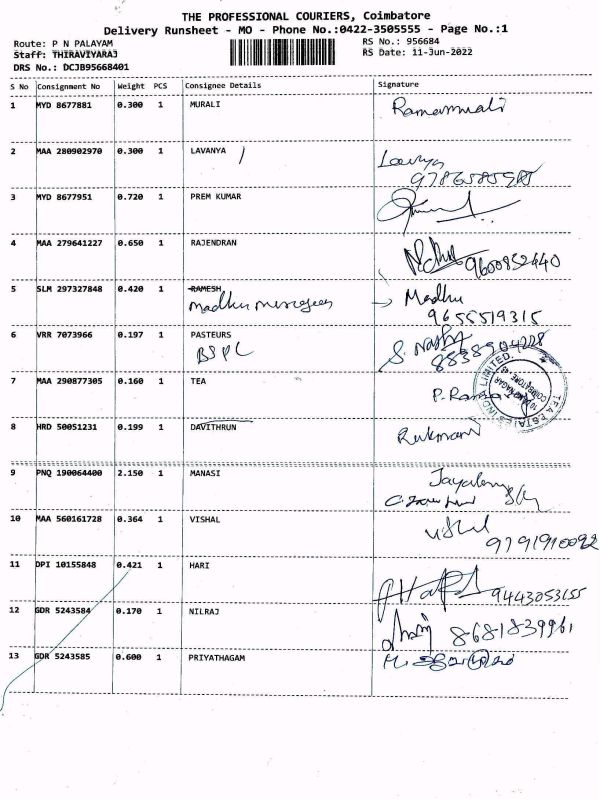 THE PROFESSIONAL COURIERS, Coimbatore
Delivery Runsheet - MO - Phone No.:0422-3505555 - Page No.:1
Route: P N PALAYAM RS No.: 956684
Staff: THIRAVIYARAJ RS Date: 11-Jun-2022
DRS No.: DCJB95668401
S No Consignment No Weight PCS Consignee Details Signature
1 MYD 8677881 0.300 1 MURALI
2 MAA 280902970 0.300 1 LAVANYA
Lavnya
9786585985
3 MYD 8677951 0.720 1 PREM KUMAR
4 MAA 279641227 0.650 1 RAJENDRAN
9600852440
5 SLM 297327848 0.420 1 RAMESH
Madhu
9655519315
6 VRR 7073966 0.197 1 PASTEURS
BSPL
8838904228
7 MAA 290877305 0.160 1 TEA
P. Rama
TEA ESTATES INDIA LIMITED.
COIMBATORE
8 HRD 50051231 0.199 1 DAVITHRUN
Rukmani
9 PNQ 190064400 2.150 1 MANASI
10 MAA 560161728 0.364 1 VISHAL
Vishal
9791910092
11 DPI 10155848 0.421 1 HARI
9443053155
12 GDR 5243584 0.170 1 NILRAJ
8681839961
13 GDR 5243585 0.600 1 PRIYATHAGAM